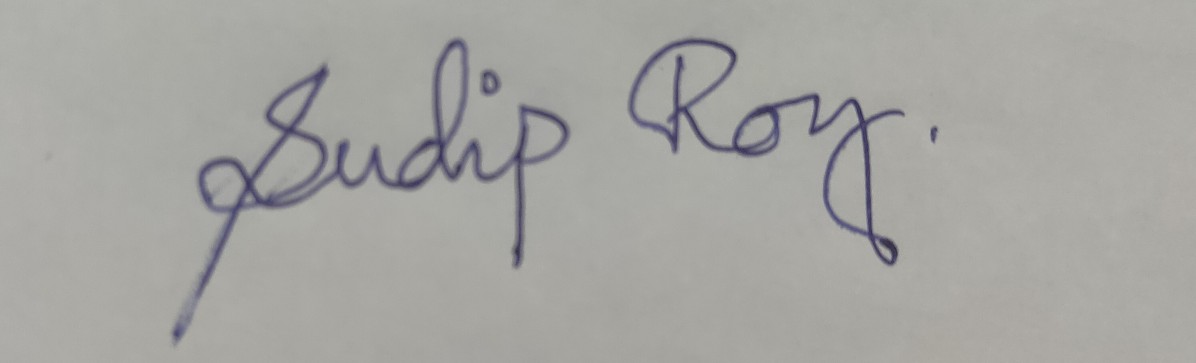 Sudip Roy.